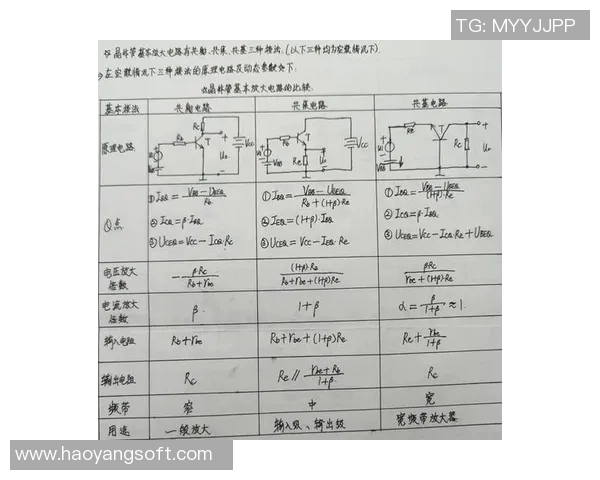 TG: MYYJJPP
☆晶体管基本放大电路有共射、共集、共基三种接法.(以下三种均为空载情况下).
→在空载情况下三种接法的原理电路及动态参数如下:
☆晶体管基本放大电路的比较.
基本接法 共射电路 共集电路 共基电路
原理电路
Rb Rc T Vcc Uo VBB
Rb T Vcc Re Uo VBB
Re T Rc Uo VBB
Q点
① IBQ = (VBB-UBEQ)/Rb
② ICQ = β·IBQ
③ UCEQ = VCC - ICQ·Rc
① IBQ = (VBB-UBEQ)/(Rb+(1+β)Re)
② IEQ = (1+β)·IBQ
③ UCEQ = VCC - IEQ·Re
① IBQ = (VBB-UBEQ)/((1+β)Re)
② ICQ = β·IBQ
③ UCEQ = VCC - ICQ·Rc + UBEQ
电压放大倍数 -βRc/(Rb+rbe) (1+β)Re/(Rb+rbe+(1+β)Re) βRc/(rbe+(1+β)Re)
电流放大倍数 β 1+β α = β/(1+β) ≈ 1
输入电阻 Rb+rbe Rb+rbe+(1+β)Re Re+rbe/(1+β)
输出电阻 Rc Re∥(rbe+Rb)/(1+β) Rc
频带 窄 中 宽
用途 一级放大 输入级、输出级 宽频带放大器
www.haoyangsoft.com